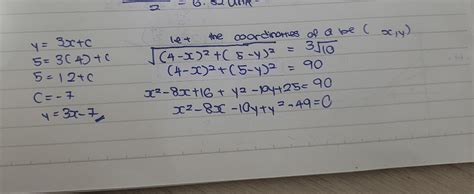 2 = 6.32 unit
y = 3x+c
5 = 3(4)+c
5 = 12+c
c = -7
y = 3x-7
Let the coordinates of a be (x,y)
√(4-x)²+(5-y)² = 3√10
(4-x)²+(5-y)² = 90
x²-8x+16+y²-10y+25=90
x²-8x-10y+y²-49=0